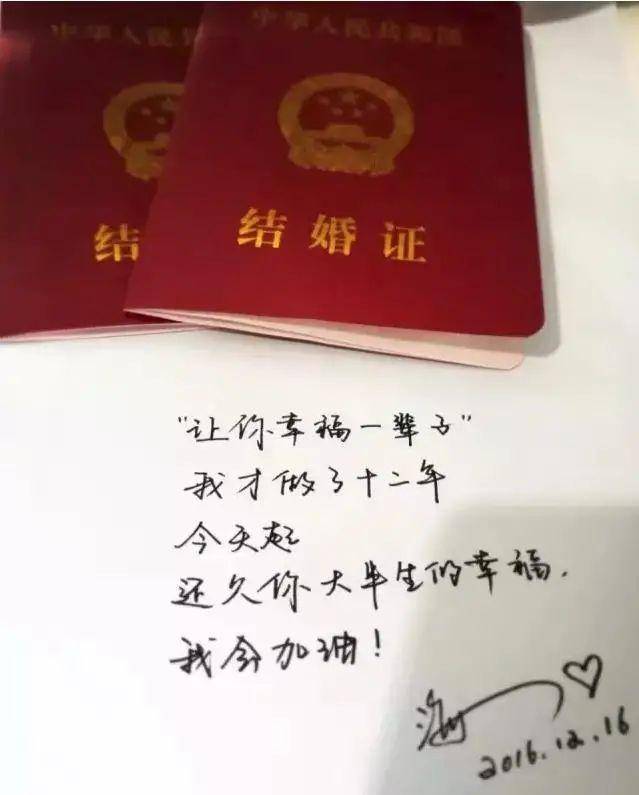 中华人民共和国
结
中华人民共和国
结婚证
"让你幸福一辈子"
我才做了十二年
今天起
还久你大半生的幸福.
我会加油!
2016.12.16